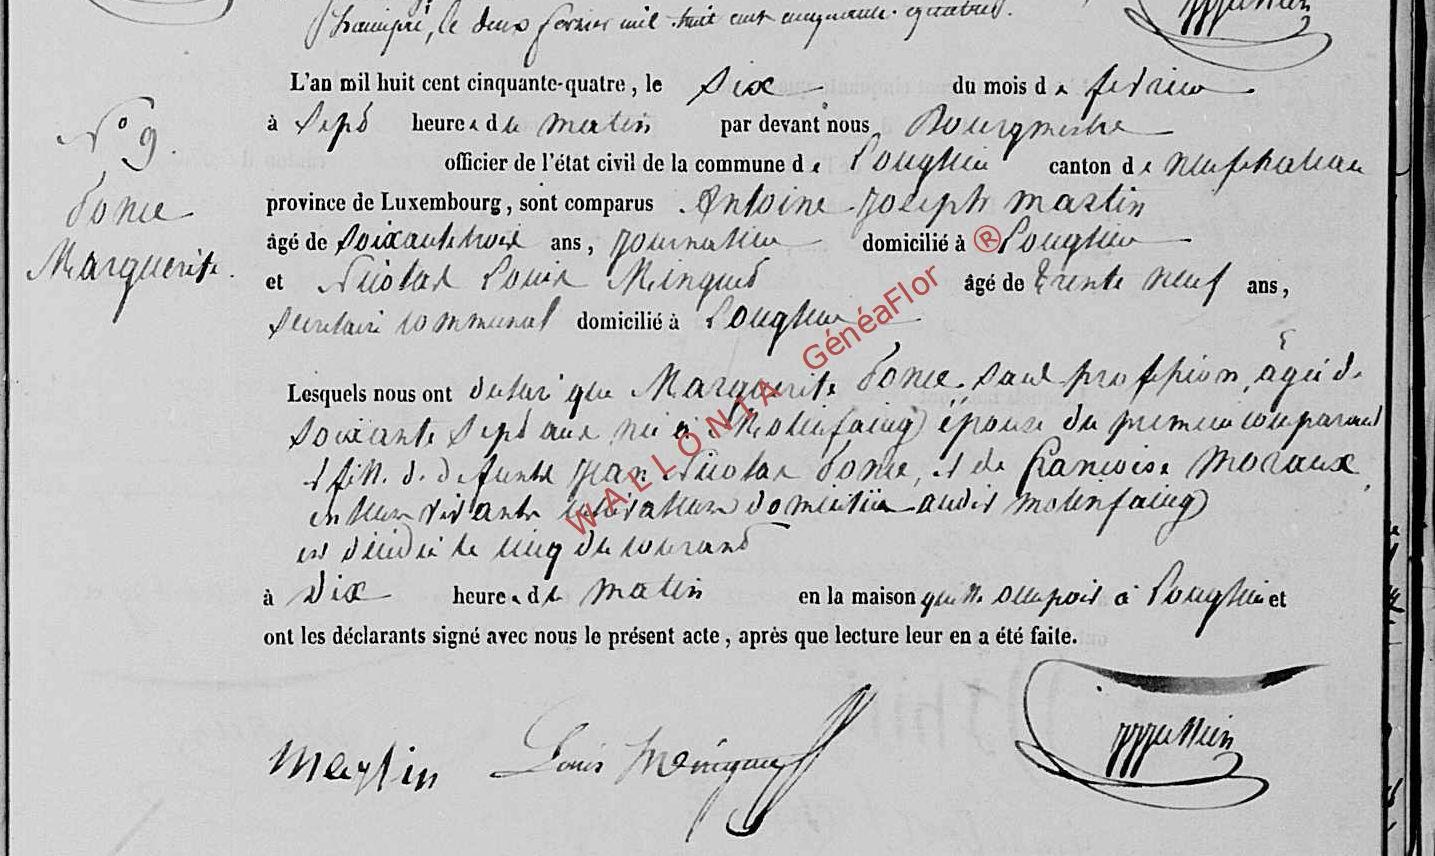 Thaimpré, le deux février mil huit cent cinquante-quatre.
L'an mil huit cent cinquante-quatre, le six du mois de février
N° 9.
à sept heures du matin par devant nous Bourgmestre
officier de l'état civil de la commune de Longlier canton de Neufchateau
Ponce
province de Luxembourg, sont comparus Antoine Joseph Maslin
Marguerite.
âgé de soixante trois ans, journalier domicilié à Longlier
et Nicolas Louis Minguet âgé de trente neuf ans,
secretaire communal domicilié à Longlier
WALLONIA GénéaFlor ®
Lesquels nous ont declaré que Marguerite Ponce, sans profession, agée de
soixante sept ans née à Molinfaing épouse du premier comparant
et fille de defunts Jean Nicolas Ponce, et de Francoise Moraux
en leur vivant cultivateurs domiciliés audit Molinfaing
est décédée le cinq du courant
à dix heures du matin en la maison qu'elle occupoit à Longlier et
ont les déclarants signé avec nous le présent acte, après que lecture leur en a été faite.
Maslin Louis Minguet